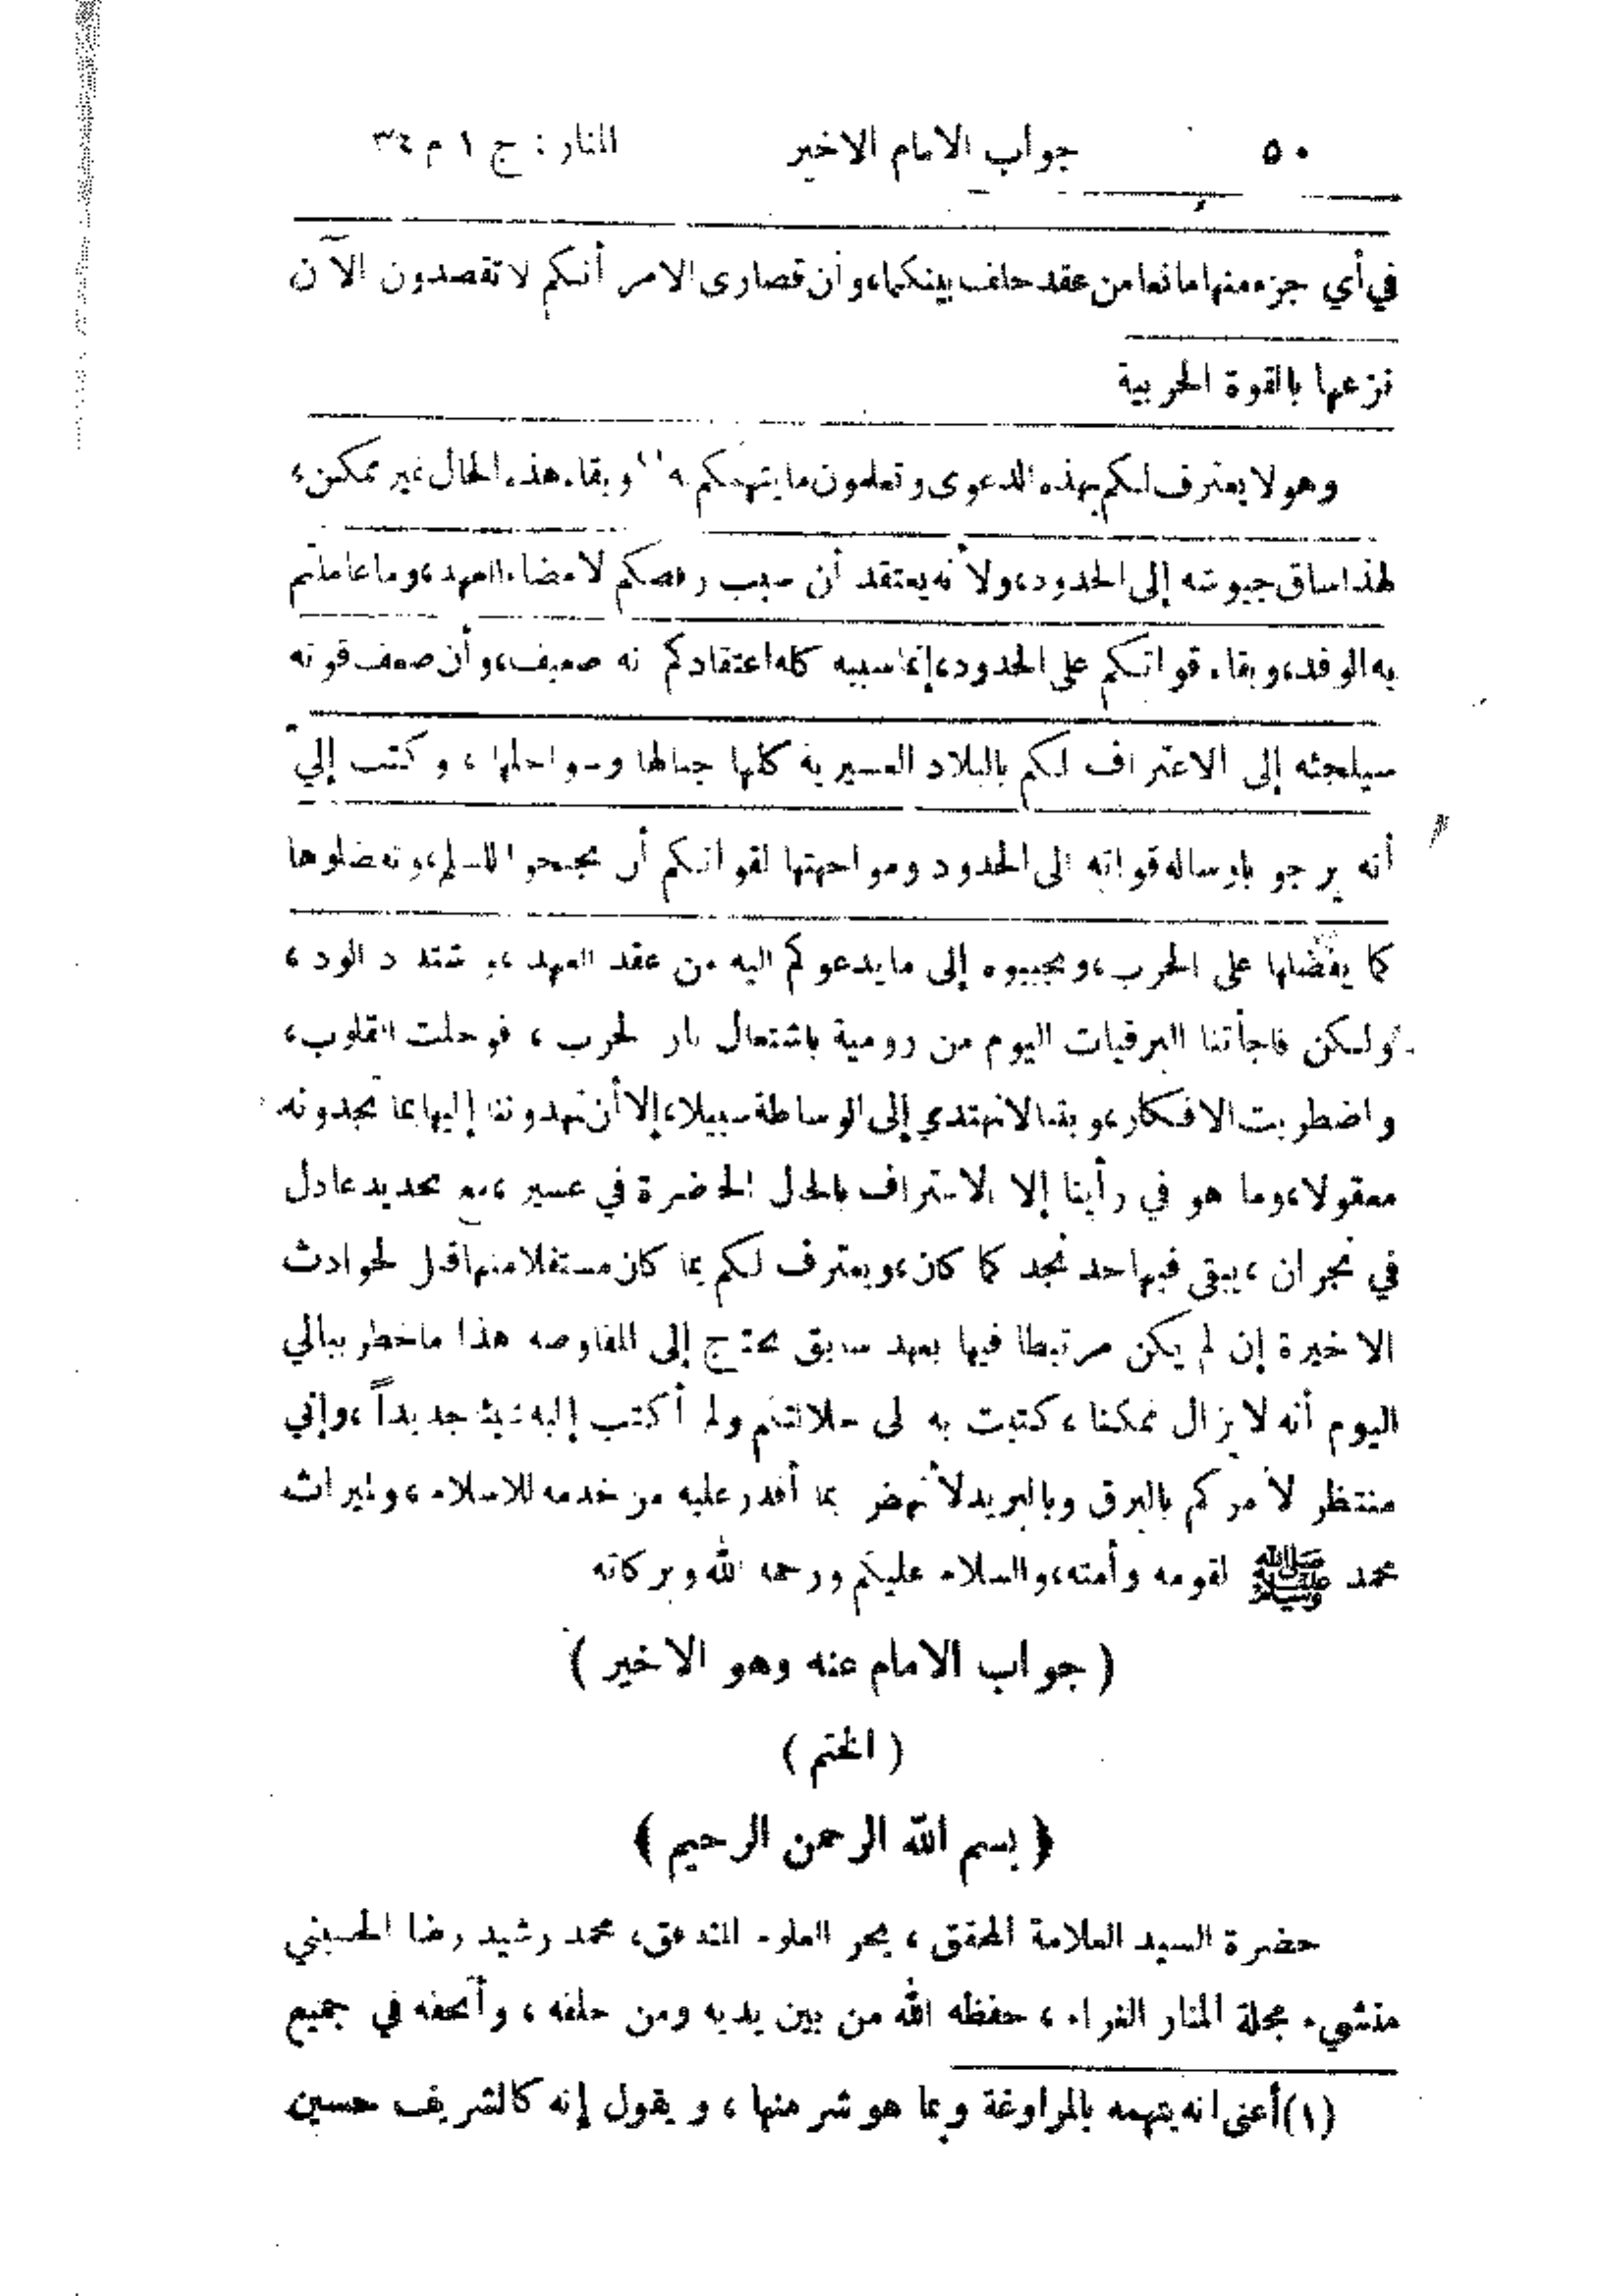 ٥٠ جواب الامام الاخير المنار : ج ١ م ٣٤
في أي جزء منها مانعا من عقد حلف بينكما، وأن قصارى الامر أنكم لا تقصدون الآن
نزعها بالقوة الحربية
وهو لا يعترف لكم بهذه الدعوى وتعلمون ما يتهمكم به (١) وبقاء هذه الحال غير ممكن،
لهذا ساق جيوشه إلى الحدود، ولأنه يعتقد أن سبب رفضكم لامضاء العهد، وما عاملتم
به الوفد، وبقاء قواتكم على الحدود، إنما سببه كله اعتقادكم أنه ضعيف، وأن ضعف قوته
سيلجئه إلى الاعتراف لكم بالبلاد العسيرية كلها جبالها وسواحلها ، وكتب إليّ
أنه يرجو بارساله قواته الى الحدود ومواجهتها لقواتكم أن تجنحوا للسلم، وتفضلوها
كما يفضلها على الحرب، وتجيبوه إلى ما يدعوكم اليه من عقد العهد، الود ،
ولكن فاجأتنا البرقيات اليوم من رومية باشتعال نار الحرب ، فوجلت القلوب،
واضطربت الافكار، وبتنا لا نهتدي إلى الوساطة سبيلا، إلا أن تهدوننا إليها بما تجدونه
معقولا، وما هو في رأينا إلا الاعتراف بالحال الحاضرة في عسير ، مع تحديد عادل
في نجران ، يبقى فيها حد نجد كما كان، ويعترف لكم بما كان مستقلا منها قبل الحوادث
الاخيرة إن لم يكن مرتبطا فيها بعهد سابق يحتاج إلى المفاوضة هذا ما خطر ببالي
اليوم أنه لا يزال ممكنا ، كتبت به إلى جلالتكم ولم أكتب إليه شيئا جديداً ، وإني
منتظر لأمركم بالبرق وبالبريد لأنهض بما أقدر عليه من خدمة للاسلام ، ولميراث
محمد ﷺ لقومه وأمته، والسلام عليكم ورحمة الله وبركاته
( جواب الامام عنه وهو الاخير )
( الختم )
﴿ بسم الله الرحمن الرحيم ﴾
حضرة السيد العلامة المحقق ، بحر العلوم المتدفق، محمد رشيد رضا الحسيني
منشيء مجلة المنار الغراء ، حفظه الله من بين يديه ومن خلفه ، وأتحفه في جميع
(١) أعنى انه يتهمه بالمراوغة وبما هو شر منها ، ويقول إنه كالشريف حسين